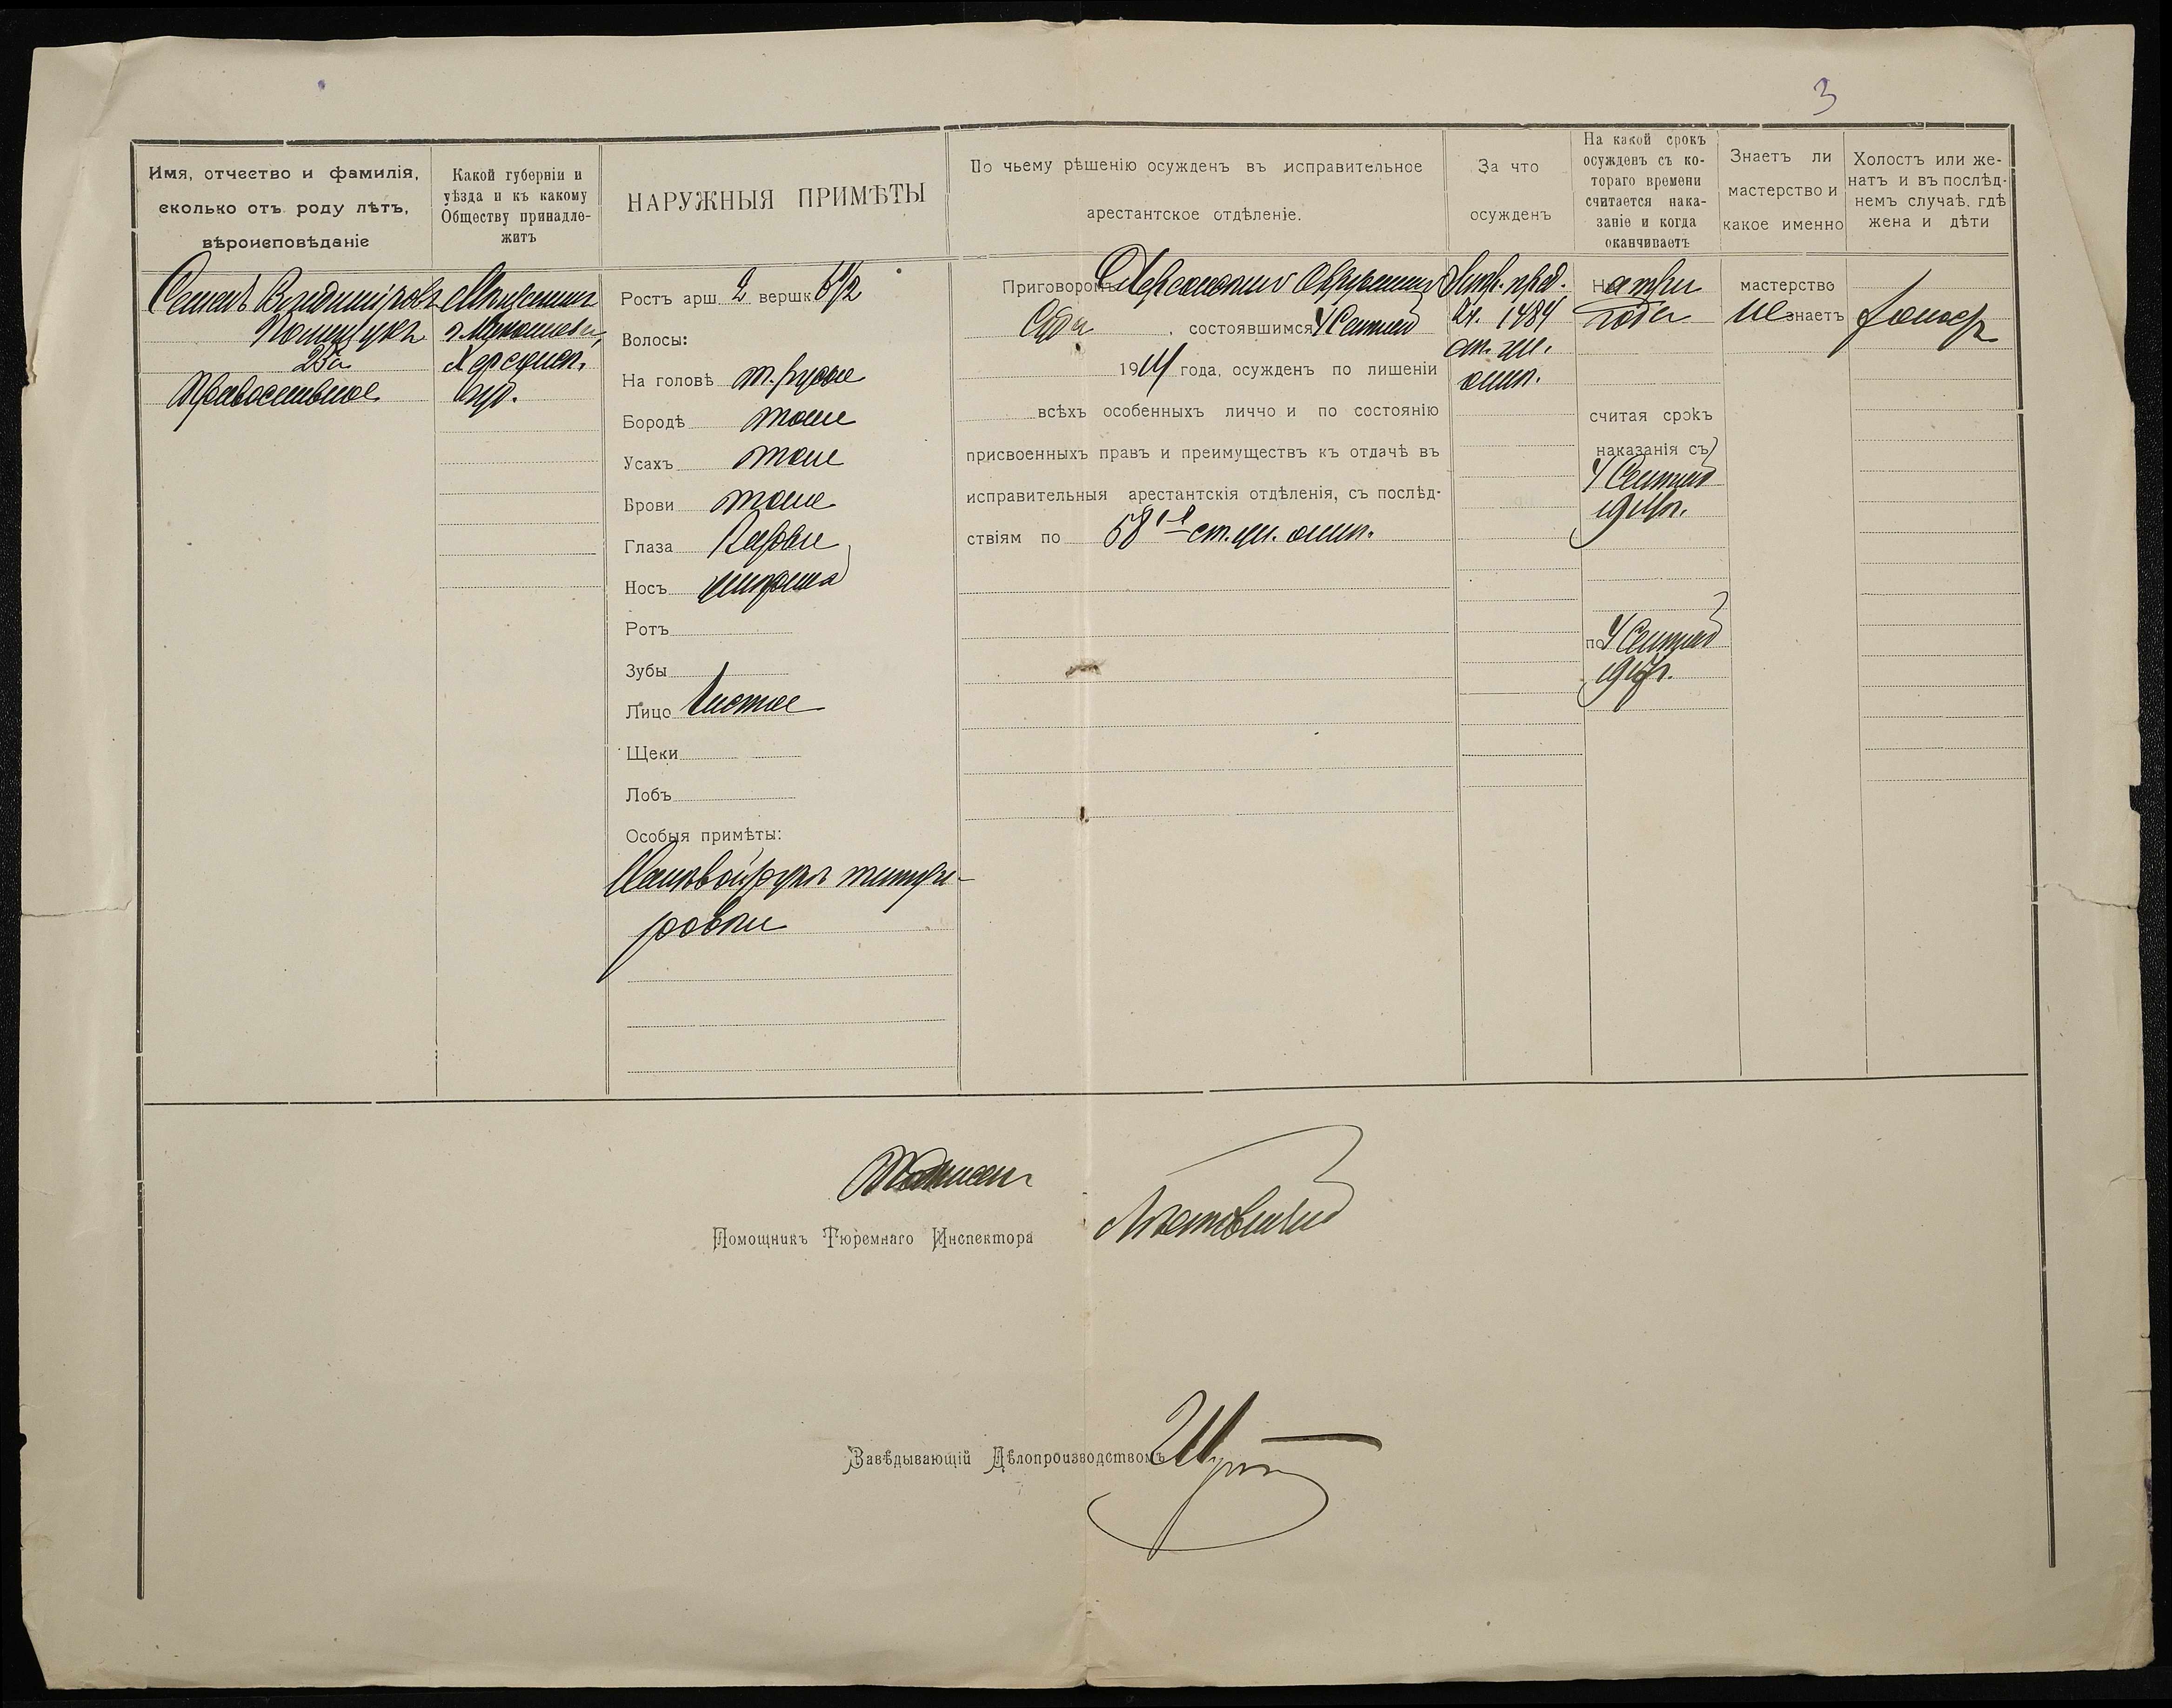 3
Имя, отчество и фамилія,
сколько отъ роду лѣтъ,
вѣроисповѣданіе
Какой губерніи и
уѣзда и къ какому
Обществу принадле-
житъ
НАРУЖНЫЯ ПРИМѢТЫ
По чьему рѣшенію осужденъ въ исправительное
арестантское отдѣленіе.
За что
осужденъ
На какой срокъ
осужденъ съ ко-
тораго времени
считается нака-
заніе и когда
оканчиваетъ
Знаетъ ли
мастерство и
какое именно
Холостъ или же-
натъ и въ послѣд-
немъ случаѣ, гдѣ
жена и дѣти
Семенъ Владиміровъ
Полищукъ
25 л.
Православное
Мѣщанинъ
г. Николаева,
Херсонск.
губ.
Ростъ арш. 2 вершк. 6 1/2
Волосы:
На головѣ т. русые
Бородѣ тоже
Усахъ тоже
Брови тоже
Глаза Карые
Носъ широкій
Ротъ
Зубы
Лицо Чистое
Щеки
Лобъ
Особыя примѣты:
На лѣвой рукѣ татуи-
ровки
Приговоромъ Херсонскаго Окружнаго
Суда, состоявшимся 4 Сентяб
1914 года, осужденъ по лишеніи
всѣхъ особенныхъ лично и по состоянію
присвоенныхъ правъ и преимуществъ къ отдачѣ въ
исправительныя арестантскія отдѣленія, съ послѣд-
ствіям по 58¹ ст. ул. о нак.
2 ч. 1484
ст. ул.
о нак.
На три
года
считая срокъ
наказанія съ
4 Сентяб
1914 г.
по 4 Сентяб
1917 г.
мастерство
не знаетъ
холостъ
Помощникъ Тюремнаго Инспектора
Завѣдывающій Дѣлопроизводствомъ